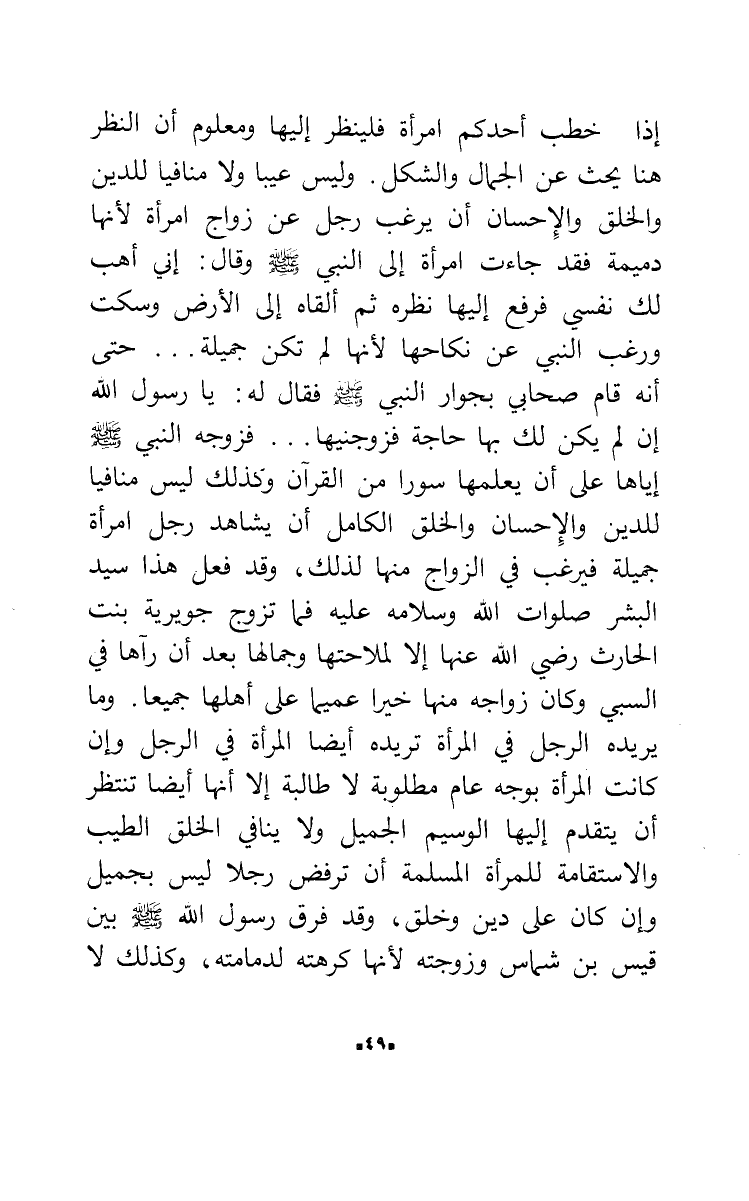 إذا خطب أحدكم امرأة فلينظر إليها ومعلوم أن النظر
هنا يحث عن الجمال والشكل. وليس عيبا ولا منافيا للدين
والخلق والإحسان أن يرغب رجل عن زواج امرأة لأنها
دميمة فقد جاءت امرأة إلى النبي ﷺ وقال: إني أهب
لك نفسي فرفع إليها نظره ثم ألقاه إلى الأرض وسكت
ورغب النبي عن نكاحها لأنها لم تكن جميلة... حتى
أنه قام صحابي بجوار النبي ﷺ فقال له: يا رسول الله
إن لم يكن لك بها حاجة فزوجنيها... فزوجه النبي ﷺ
إياها على أن يعلمها سورا من القرآن وكذلك ليس منافيا
للدين والإحسان والخلق الكامل أن يشاهد رجل امرأة
جميلة فيرغب في الزواج منها لذلك، وقد فعل هذا سيد
البشر صلوات الله وسلامه عليه فما تزوج جويرية بنت
الحارث رضي الله عنها إلا لملاحتها وجمالها بعد أن رآها في
السبي وكان زواجه منها خيرا عميما على أهلها جميعا. وما
يريده الرجل في المرأة تريده أيضا المرأة في الرجل وإن
كانت المرأة بوجه عام مطلوبة لا طالبة إلا أنها أيضا تنتظر
أن يتقدم إليها الوسيم الجميل ولا ينافي الخلق الطيب
والاستقامة للمرأة المسلمة أن ترفض رجلا ليس بجميل
وإن كان على دين وخلق، وقد فرق رسول الله ﷺ بين
قيس بن شماس وزوجته لأنها كرهته لدمامته، وكذلك لا
▪٤٩▪